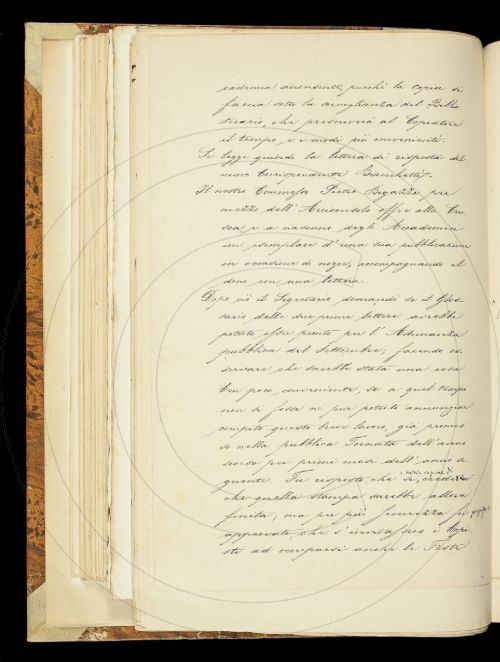 cademia accondente, purché la copia si
faccia sotto la sorveglianza del Biblio
tecario, che prescriverà al Copiatore
il tempo, e i modi più convenienti.
Si legge quindi la lettera di risposta del
nuovo Corrispondente Bianchetti.
Il nostro Commesso Pietro Bigazzi per
mezzo dell'Arciconsolo offre alla Cru
sca, e a ciascuno degli Accademici
un esemplare d'una sua pubblicazione
in occasione di nozze, accompagnando il
dono con una lettera.
Dopo ciò il Segretario domandò se il Glos
sario delle due prime lettere avrebbe
potuto esser pronto per l'Adunanza
pubblica del Settembre; facendo os
servare che sarebbe stata una cosa
ben poco conveniente, se a quel tempo
non si fosse né pur potuto annunziar
compito questo breve lavoro, già promes
so nella pubblica Tornata dell'anno
scorso pei primi mesi dell'anno se
guente. Fu risposto, che si credeva
che quella stampa sarebbe allora
finita; ma per più sicurezza fu
approvato che s'invitassero i Copi
sti ad occuparsi anche le Feste